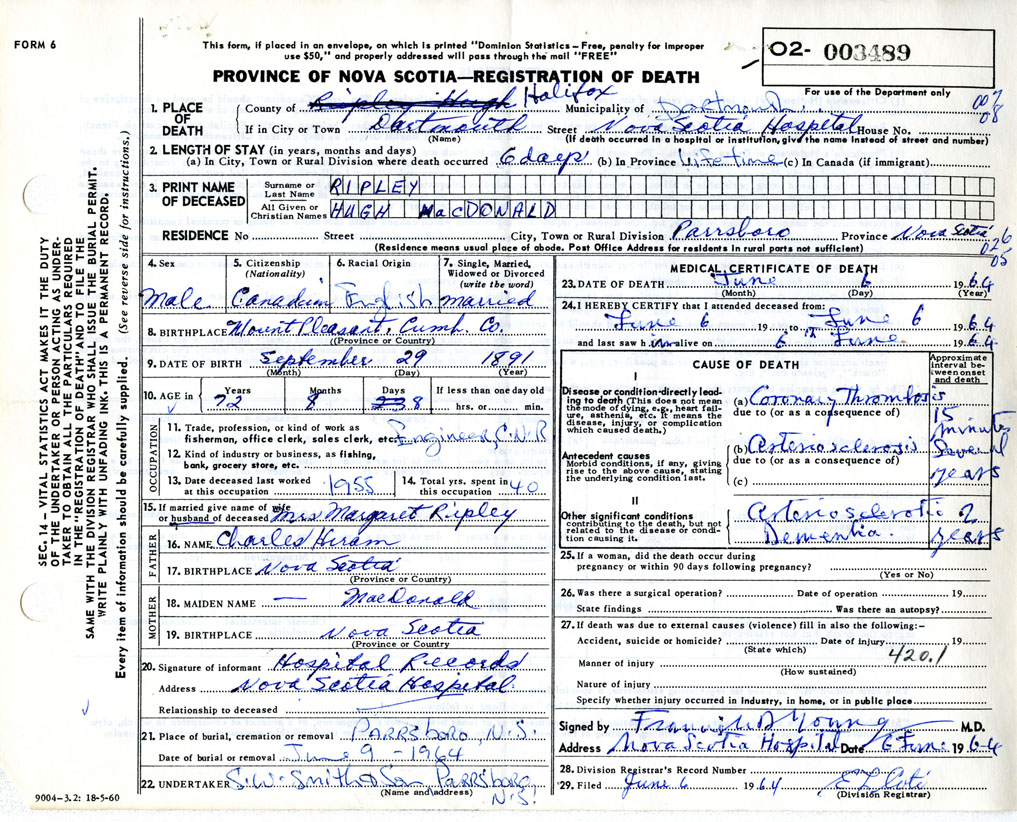 FORM 6
This form, if placed in an envelope, on which is printed "Dominion Statistics—Free, penalty for improper
use $50," and properly addressed will pass through the mail "FREE"
O2- 003489
PROVINCE OF NOVA SCOTIA—REGISTRATION OF DEATH
For use of the Department only
SEC. 14—VITAL STATISTICS ACT MAKES IT THE DUTY
OF THE UNDERTAKER OR PERSON ACTING AS UNDER-
TAKER TO OBTAIN ALL THE PARTICULARS REQUIRED
IN THE "REGISTRATION OF DEATH" AND TO FILE THE
SAME WITH THE DIVISION REGISTRAR WHO SHALL ISSUE THE BURIAL PERMIT.
WRITE PLAINLY WITH UNFADING INK. THIS IS A PERMANENT RECORD.
Every item of information should be carefully supplied. (See reverse side for instructions.)
1. PLACE OF DEATH
County of Ripley Hugh Halifax Municipality of Dartmouth
If in City or Town Dartmouth Street Nova Scotia Hospital House No.
(Name) (If death occurred in a hospital or institution, give the name instead of street and number)
2. LENGTH OF STAY (in years, months and days)
(a) In City, Town or Rural Division where death occurred 6 days (b) In Province Life-time (c) In Canada (if immigrant)
3. PRINT NAME OF DECEASED
Surname or Last Name RIPLEY
All Given or Christian Names HUGH MacDONALD
RESIDENCE No Street City, Town or Rural Division Parrsboro Province Nova Scotia
(Residence means usual place of abode. Post Office Address for residents in rural parts not sufficient)
026
05
4. Sex Male
5. Citizenship (Nationality) Canadian
6. Racial Origin English
7. Single, Married, Widowed or Divorced (write the word) married
8. BIRTHPLACE Mount Pleasant, Cumb. Co.
(Province or Country)
9. DATE OF BIRTH September 29 1891
(Month) (Day) (Year)
10. AGE in Years 72 Months 8 Days 8 If less than one day old hrs. or min.
OCCUPATION
11. Trade, profession, or kind of work as
fisherman, office clerk, sales clerk, etc. Engineer, C.N.R
12. Kind of industry or business, as fishing,
bank, grocery store, etc.
13. Date deceased last worked at this occupation 1955 14. Total yrs. spent in this occupation 40
15. If married give name of wife
or husband of deceased Mrs Margaret Ripley
FATHER
16. NAME Charles Hiram
17. BIRTHPLACE Nova Scotia
(Province or Country)
MOTHER
18. MAIDEN NAME — MacDonald
19. BIRTHPLACE Nova Scotia
(Province or Country)
20. Signature of informant Hospital Records
Address Nova Scotia Hospital
Relationship to deceased
21. Place of burial, cremation or removal PARRSBORO, N.S.
Date of burial or removal June 9 - 1964
22. UNDERTAKER S.W. Smith & Son PARRSBORO,
(Name and address) N.S.
9004-3.2: 18-5-60
MEDICAL CERTIFICATE OF DEATH
23. DATE OF DEATH June 6 1964
(Month) (Day) (Year)
24. I HEREBY CERTIFY that I attended deceased from:
June 6 19 to June 6 1964
and last saw him alive on 6 June 1964
CAUSE OF DEATH
Approximate interval between onset and death
I
Disease or condition directly leading to death (This does not mean the mode of dying, e.g., heart failure, asthenia, etc. It means the disease, injury, or complication which caused death.)
(a) Coronary Thrombosis 15 minutes
due to (or as a consequence of)
Antecedent causes
Morbid conditions, if any, giving rise to the above cause, stating the underlying condition last.
(b) Arteriosclerosis Several years
due to (or as a consequence of)
(c)
II
Other significant conditions
contributing to the death, but not related to the disease or condition causing it.
Arteriosclerotic Dementia. 2 years
25. If a woman, did the death occur during
pregnancy or within 90 days following pregnancy?
(Yes or No)
26. Was there a surgical operation? Date of operation 19
State findings Was there an autopsy?
27. If death was due to external causes (violence) fill in also the following:-
Accident, suicide or homicide? Date of injury 19
(State which) 420.1
Manner of injury
(How sustained)
Nature of injury
Specify whether injury occurred in industry, in home, or in public place
Signed by Young M.D.
Address Nova Scotia Hospital Date 6 June 1964
28. Division Registrar's Record Number
29. Filed June 6 1964
(Division Registrar)